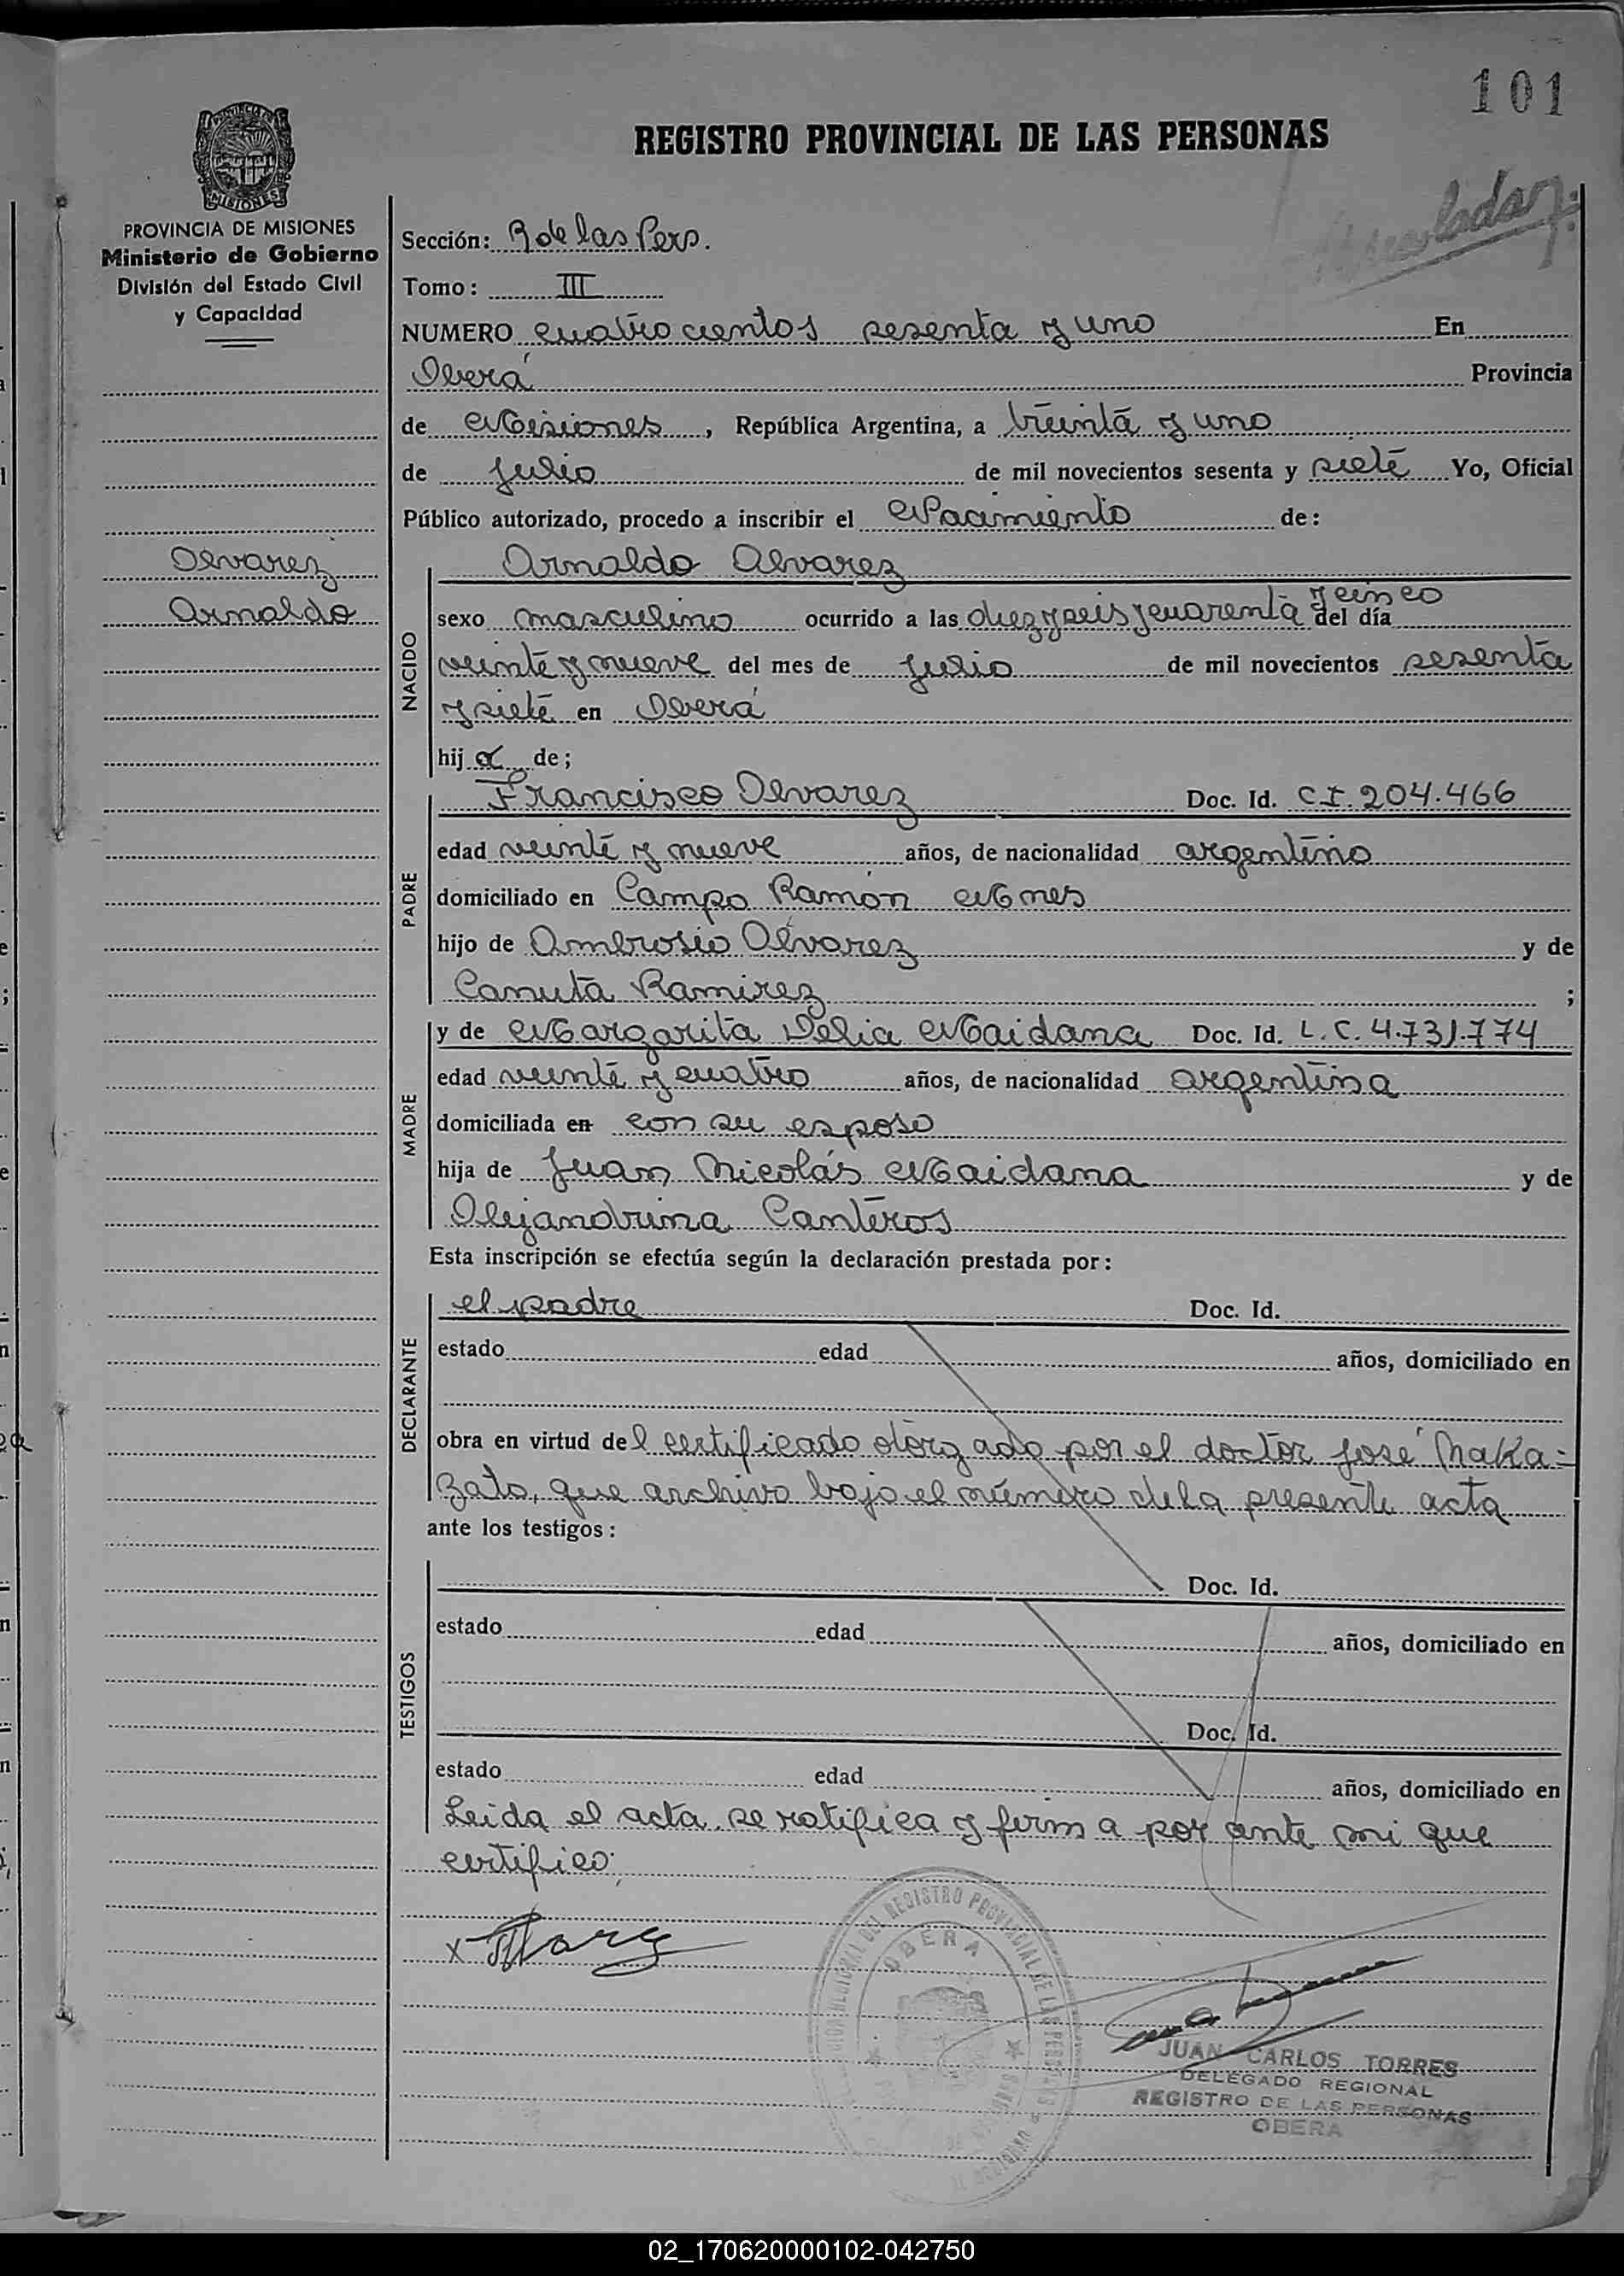 101
REGISTRO PROVINCIAL DE LAS PERSONAS
PROVINCIA DE MISIONES
Ministerio de Gobierno
División del Estado Civil
y Capacidad
Sección: R de las Pers.
Tomo: III
NUMERO cuatrocientos sesenta y uno En
Oberá Provincia
de Misiones, República Argentina, a treinta y uno
de julio de mil novecientos sesenta y siete Yo, Oficial
Público autorizado, procedo a inscribir el Nacimiento de:
Alvarez
Arnaldo
Arnaldo Alvarez
NACIDO
sexo masculino ocurrido a las diez y seis y cuarenta y cinco del día
veinte y nueve del mes de julio de mil novecientos sesenta
y siete en Oberá
hijo de;
PADRE
Francisco Alvarez Doc. Id. C.I. 204.466
edad veinte y nueve años, de nacionalidad argentino
domiciliado en Campo Ramón Mnes
hijo de Ambrosio Alvarez y de
Canuta Ramirez ;
MADRE
y de Margarita Delia Maidana Doc. Id. L.C. 4.731.774
edad veinte y cuatro años, de nacionalidad argentina
domiciliada en con su esposo
hija de Juan Nicolás Maidana y de
Alejandrina Canteros
Esta inscripción se efectúa según la declaración prestada por:
DECLARANTE
el padre Doc. Id.
estado edad años, domiciliado en
obra en virtud del certificado otorgado por el doctor José Naka=
zato, que archivo bajo el número de la presente acta
ante los testigos:
TESTIGOS
Doc. Id.
estado edad años, domiciliado en
Doc. Id.
estado edad años, domiciliado en
Leida el acta se ratifica y firma por ante mi que
certifico:
REGISTRO PROVINCIAL DE LAS PERSONAS
OBERA
JUAN CARLOS TORRES
DELEGADO REGIONAL
REGISTRO DE LAS PERSONAS
OBERA
02_170620000102-042750